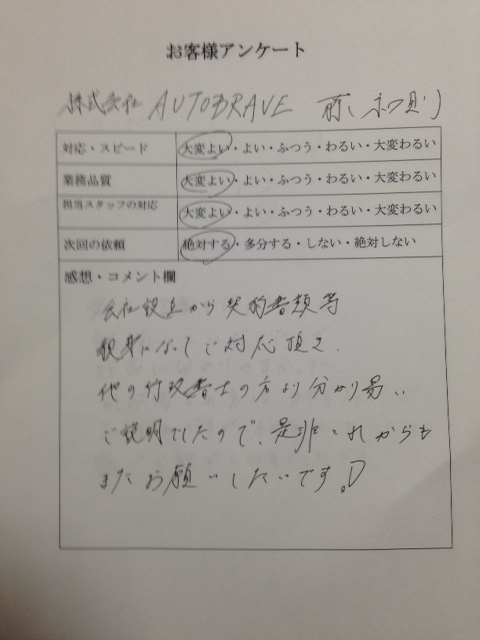 お客様アンケート
株式会社 AUTOBRAVE 前
対応・スピード 大変よい・よい・ふつう・わるい・大変わるい
業務品質 大変よい・よい・ふつう・わるい・大変わるい
担当スタッフの対応 大変よい・よい・ふつう・わるい・大変わるい
次回の依頼 絶対する・多分する・しない・絶対しない
感想・コメント欄
会社設立から契約書類等
ご対応頂き、
他の行政書士の方より分かり易い
ご説明でしたので、是非これからも
またお願いしたいです。